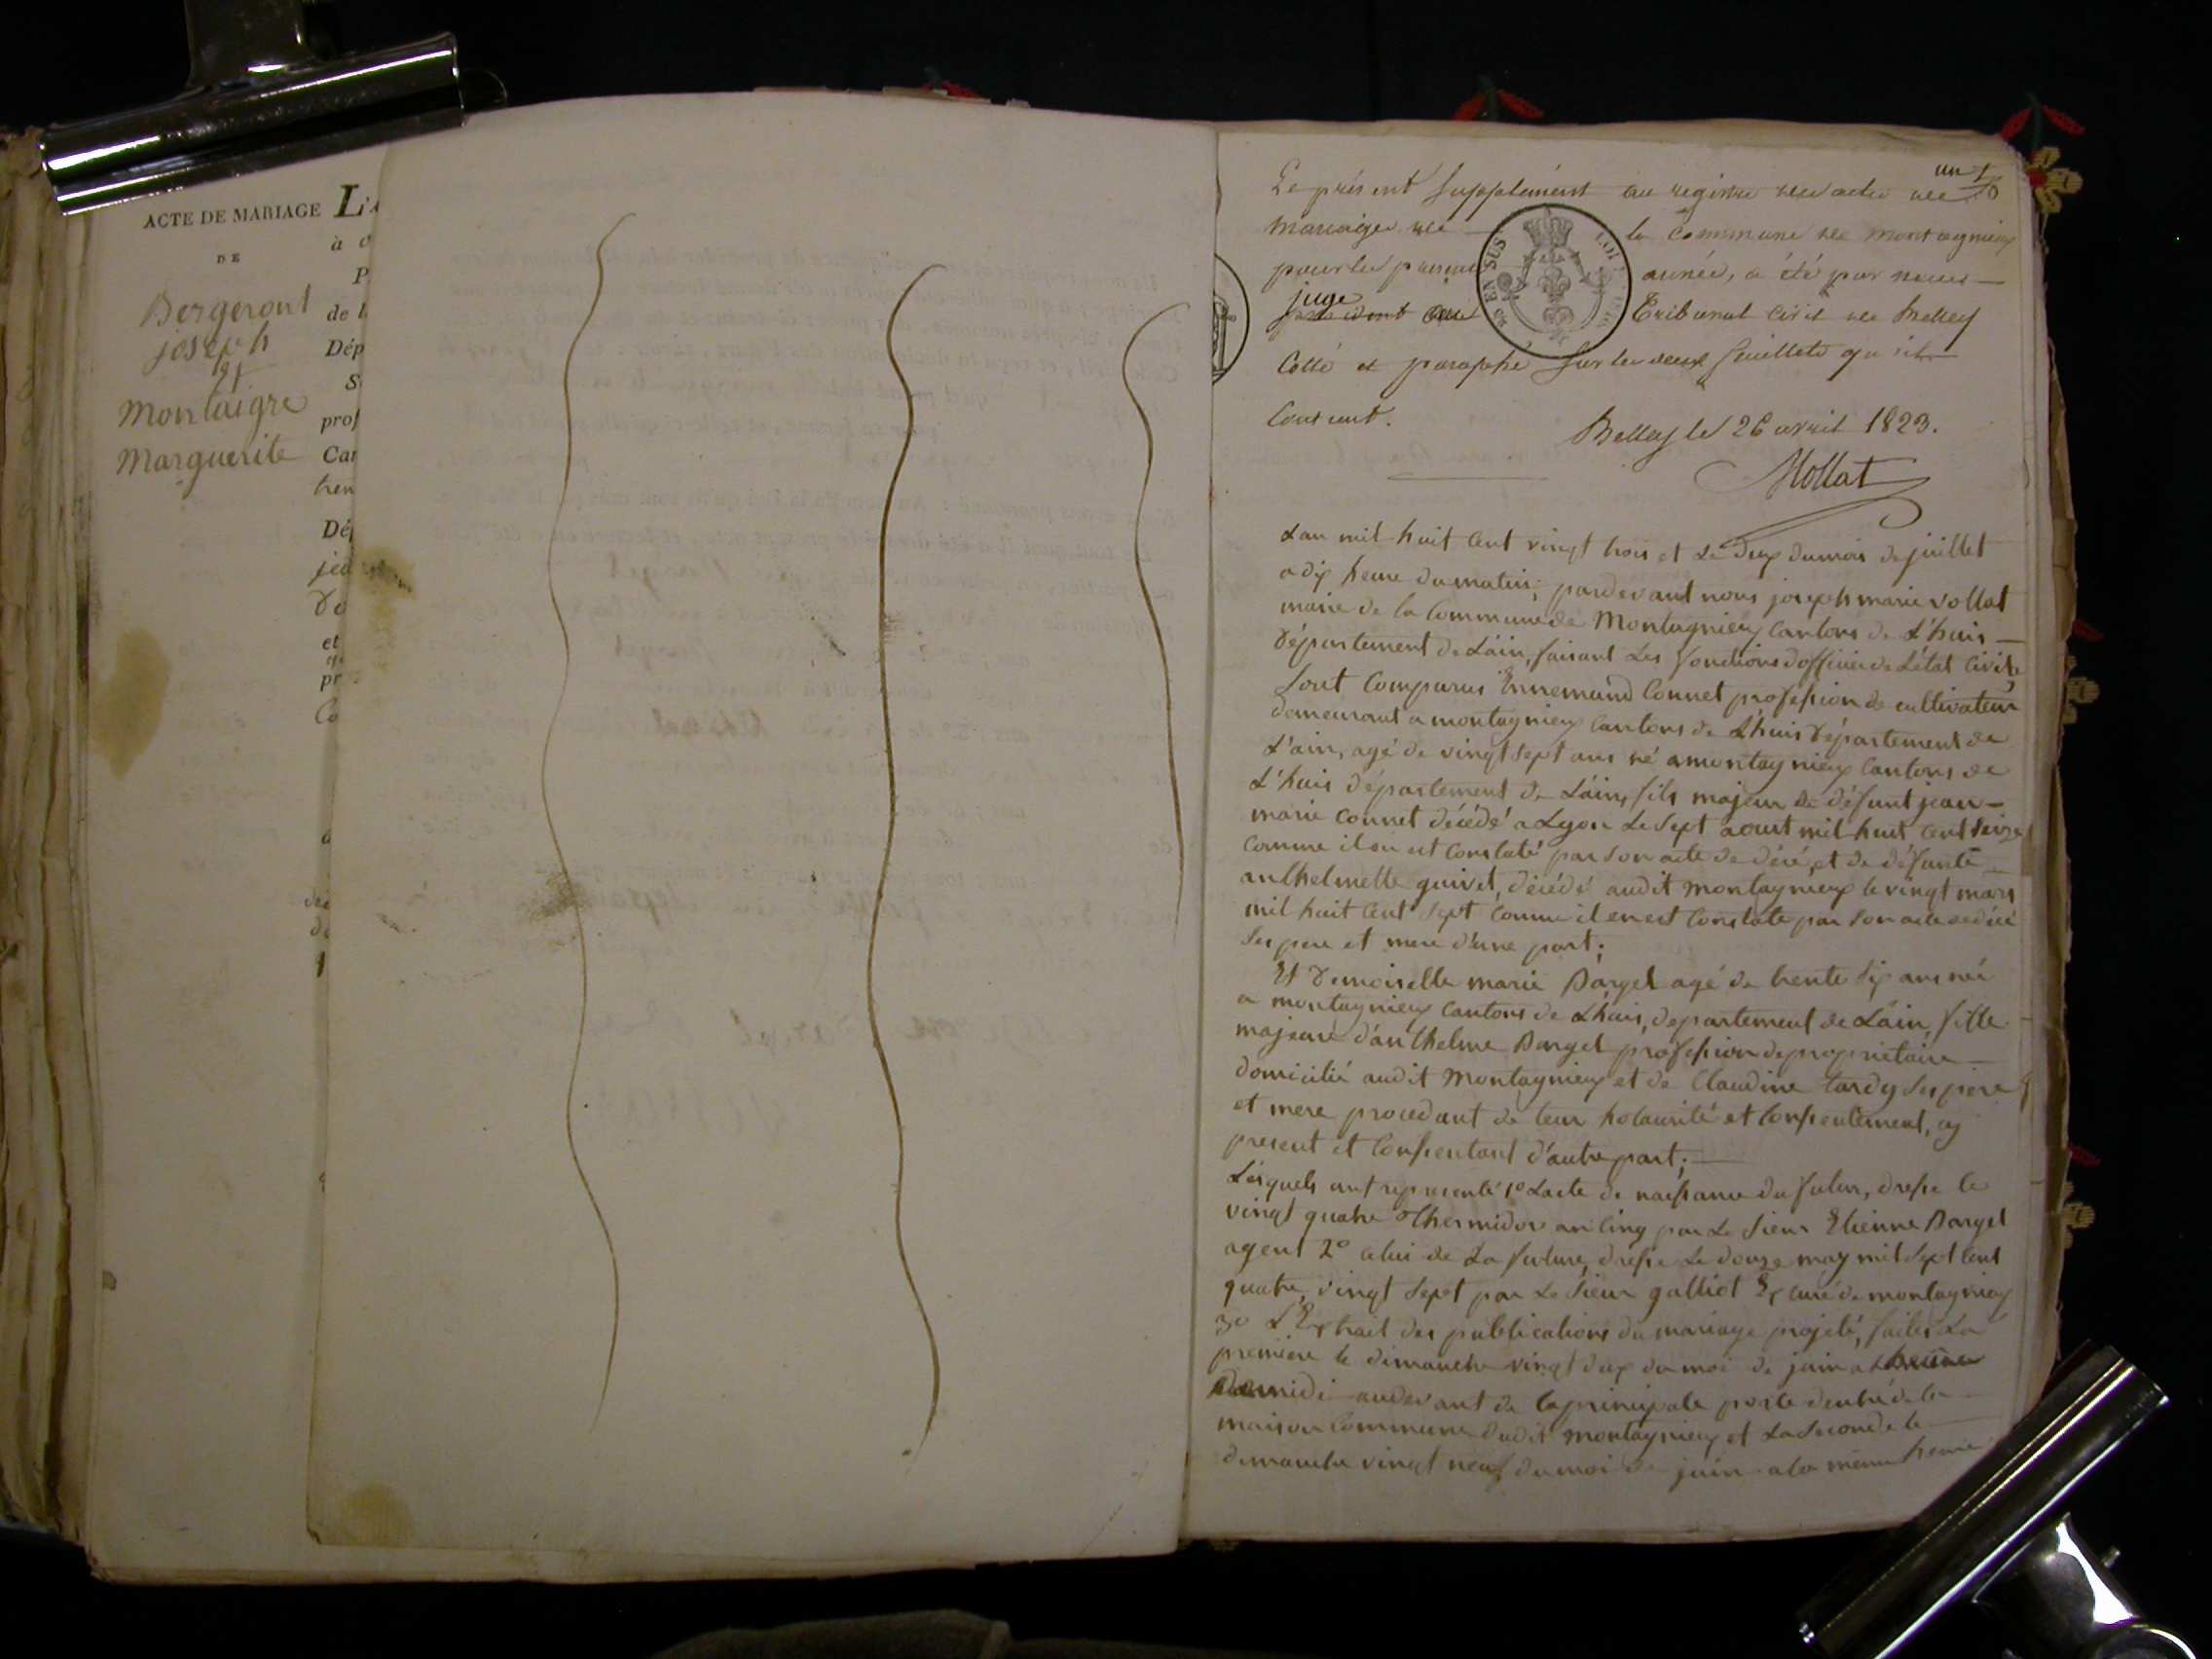 ACTE DE MARIAGE
DE
Bergeront
joseph
et
Montaigre
Marguerite
L'A
à
P
de l
Dép
S
prof
Can
tren
Dép
et
pr
Co
un 1
Le présent Supplément au registre des actes de
mariage de la commune de Montagnieu
pour la présente année, a été par nous
juge
président au Tribunal civil de Belley
Cotté et paraphé sur les deux feuillets qu'il
Contient.
Belley le 26 avril 1823.
Mollat
L'an mil huit cent vingt trois et le deux du mois de juillet
a dix heure du matin; pardevant nous joseph marie vollat
maire de la Commune de Montagnieu Cantons de L'huis
Département de L'ain, faisant les fonctions d'officier de L'état Civile,
Sont Comparus Ennemond Connet profession de cultivateur
demeurant a montagnieu Cantons de L'huis Département de
L'ain, agé de vingt sept ans né a montagnieu Cantons de
L'huis département de L'ain, fils majeur de défunt jean
marie connet décédé a Lyon le sept aoust mil huit cent seize
comme il en est Constaté par son acte de décé, et de défunte
anthelmette guivet, décédé audit Montagnieu le vingt mars
mil huit cent sept comme il en est Constaté par son acte de décé
Ses pere et mere d'une part;
Et Demoiselle marie Darget agé de trente six ans née
a montagnieu Cantons de L'huis, departement de L'ain, fille
majeure d'anthelme Darget profession de propriétaire
domicilié audit Montagnieu et de Claudine tardy ses pere
et mere procedant de leur hotaurité et Consentement, cy
present et Consentant d'autre part;
Lesquels ont representé 1º L'acte de naissance du futur, dressé le
vingt quatre Thermidor an Cinq par Le Sieur Etienne Darget
agent 2º Celui de La future, dressé Le douze may mil sept cent
quatre vingt sept par Le Sieur galliot Ex curé de montagnieu
3º L'Extrait des publications du mariage projeté, faites La
première le dimanche vingt deux du moi de juin a
midi audevant de la principale porte d'entré de la
maison Commune dudit Montagnieu et La Seconde le
dimanche vingt neuf du moi de juin a la même heure